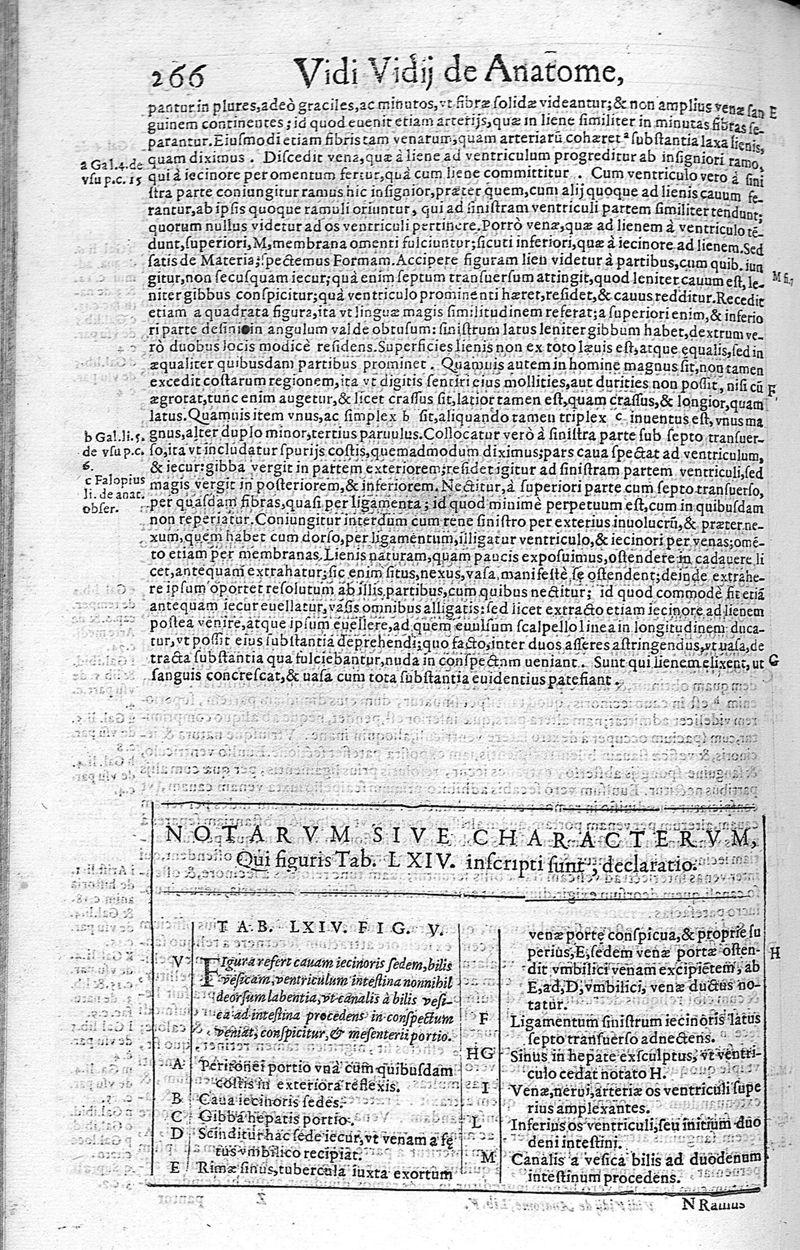 266 Vidi Vidij de Anatome,
pantur in plures, adeò graciles, ac minutos, vt fibræ solidæ videantur; & non amplius venæ san E
guinem continentes; id quod euenit etiam arterijs, quæ in liene similiter in minutas fibras se-
parantur. Eiusmodi etiam fibris tam venarum, quam arteriarū cohæret ª substantia laxa lienis,
a Gal. 4. de quam diximus. Discedit vena, quæ à liene ad ventriculum progreditur ab insigniori ramo,
vsu p.c. 15 qui à iecinore per omentum fertur, quà cum liene committitur. Cum ventriculo vero à sini
stra parte coniungitur ramus hic insignior, præter quem, cum alij quoque ad lienis cauum fe-
rantur, ab ipsis quoque ramuli oriuntur, qui ad sinistram ventriculi partem similiter tendunt;
quorum nullus videtur ad os ventriculi pertinere. Porrò venæ, quæ ad lienem à ventriculo tē-
dunt, superiori, M, membrana omenti fulciuntur; sicuti inferiori, quæ à iecinore ad lienem. Sed
satis de Materia; spectemus Formam. Accipere figuram lien videtur à partibus, cum quib. iun
gitur, non secus quam iecur; quà enim septum transuersum attingit, quod leniter cauum est, le- M fi. 7
niter gibbus conspicitur; quà ventriculo prominenti hæret, residet, & cauus redditur. Recedit
etiam a quadrata figura, ita vt linguæ magis similitudinem referat; a superiori enim, & inferio
ri parte desinit in angulum valde obtusum: sinistrum latus leniter gibbum habet, dextrum ve-
rò duobus locis modicè residens. Superficies lienis non ex toto læuis est, atque equalis, sed in
æqualiter quibusdam partibus prominet. Quamuis autem in homine magnus sit, non tamen
excedit costarum regionem, ita vt digitis sentiri eius mollities, aut durities non possit, nisi cū F
ægrotat, tunc enim augetur, & licet crassus sit, latior tamen est, quam crassus, & longior, quam
latus. Quamuis item vnus, ac simplex b sit, aliquando tamen triplex c inuentus est, vnus ma
b Gal. li. 5. gnus, alter duplo minor, tertius paruulus. Collocatur verò à sinistra parte sub septo transuer-
de vsu p.c. so, ita vt includatur spurijs costis, quemadmodum diximus; pars caua spectat ad ventriculum,
6. & iecur: gibba vergit in partem exteriorem; residet igitur ad sinistram partem ventriculi, sed
c Falopius magis vergit in posteriorem, & inferiorem. Nectitur, à superiori parte cum septo transuerso,
li. de anat. per quasdam fibras, quasi per ligamenta; id quod minimè perpetuum est, cum in quibusdam
obser. non reperiatur. Coniungitur interdum cum rene sinistro per exterius inuolucrū, & præter ne-
xum, quem habet cum dorso, per ligamentum, illigatur ventriculo, & iecinori per venas; omē-
to etiam per membranas. Lienis naturam, quam paucis exposuimus, ostendere in cadauere li
cet, antequam extrahatur; sic enim situs, nexus, vasa manifestè se ostendent; deinde extrahe-
re ipsum oportet resolutum ab illis partibus, cum quibus nectitur; id quod commodè fit etiā
antequam iecur euellatur, vasis omnibus alligatis: sed licet extracto etiam iecinore ad lienem
postea venire, atque ipsum euellere, ad quem euulsum scalpello linea in longitudinem duca-
tur, vt possit eius substantia deprehendi; quo facto, inter duos asseres astringendus, vt uasa, de
tracta substantia qua fulciebantur, nuda in conspectum ueniant. Sunt qui lienem elixent, ut G
sanguis concrescat, & uasa cum tota substantia euidentius patefiant.
NOTARVM SIVE CHARACTERVM,
Qui figuris Tab. LXIV. inscripti sunt, declaratio.
TAB. LXIV. FIG. V.
V Figura refert cauam iecinoris sedem, bilis
vesicam, ventriculum intestina nonnihil
deorsum labentia, vt canalis à bilis vesi-
ca ad intestina procedens in conspectum
veniat, conspicitur, & mesenterii portio.
A Peritonei portio vnà cum quibusdam
costis in exteriora reflexis.
B Caua iecinoris sedes.
C Gibba hepatis portio.
D Scinditur hac sede iecur, vt venam a fę
tus vmbilico recipiat.
E Rimæ sinus, tubercula iuxta exortum
venæ porte conspicua, & proprie su
perius, E, sedem venæ portæ osten- H
dit vmbilici venam excipiētem, ab
E, ad, D, vmbilici, venæ ductus no-
tatur.
F Ligamentum sinistrum iecinoris latus
septo transuerso adnectens.
HG Sinus in hepate exsculptus, vt ventri-
culo cedat notato H.
I Venæ, nerui, arteriæ os ventriculi supe
rius amplexantes.
L Inferius os ventriculi, seu initium duo
deni intestini.
M Canalis a vesica bilis ad duodenum
intestinum procedens.
N Ramus